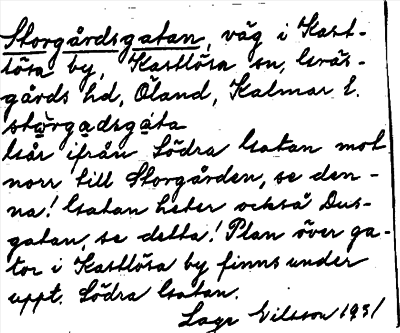 Storgårdsgatan, väg i Kast-
lösa by, Kastlösa sn, Gräs-
gårds hd, Öland, Kalmar l.
stǫrgadsgata
Går ifrån Södra Gatan mot
norr till Storgården, se den-
na! Gatan heter också Dus-
gatan, se detta! Plan över ga-
tor i Kastlösa by finns under
uppt. Södra Gatan.
Lage Nilsson 1931